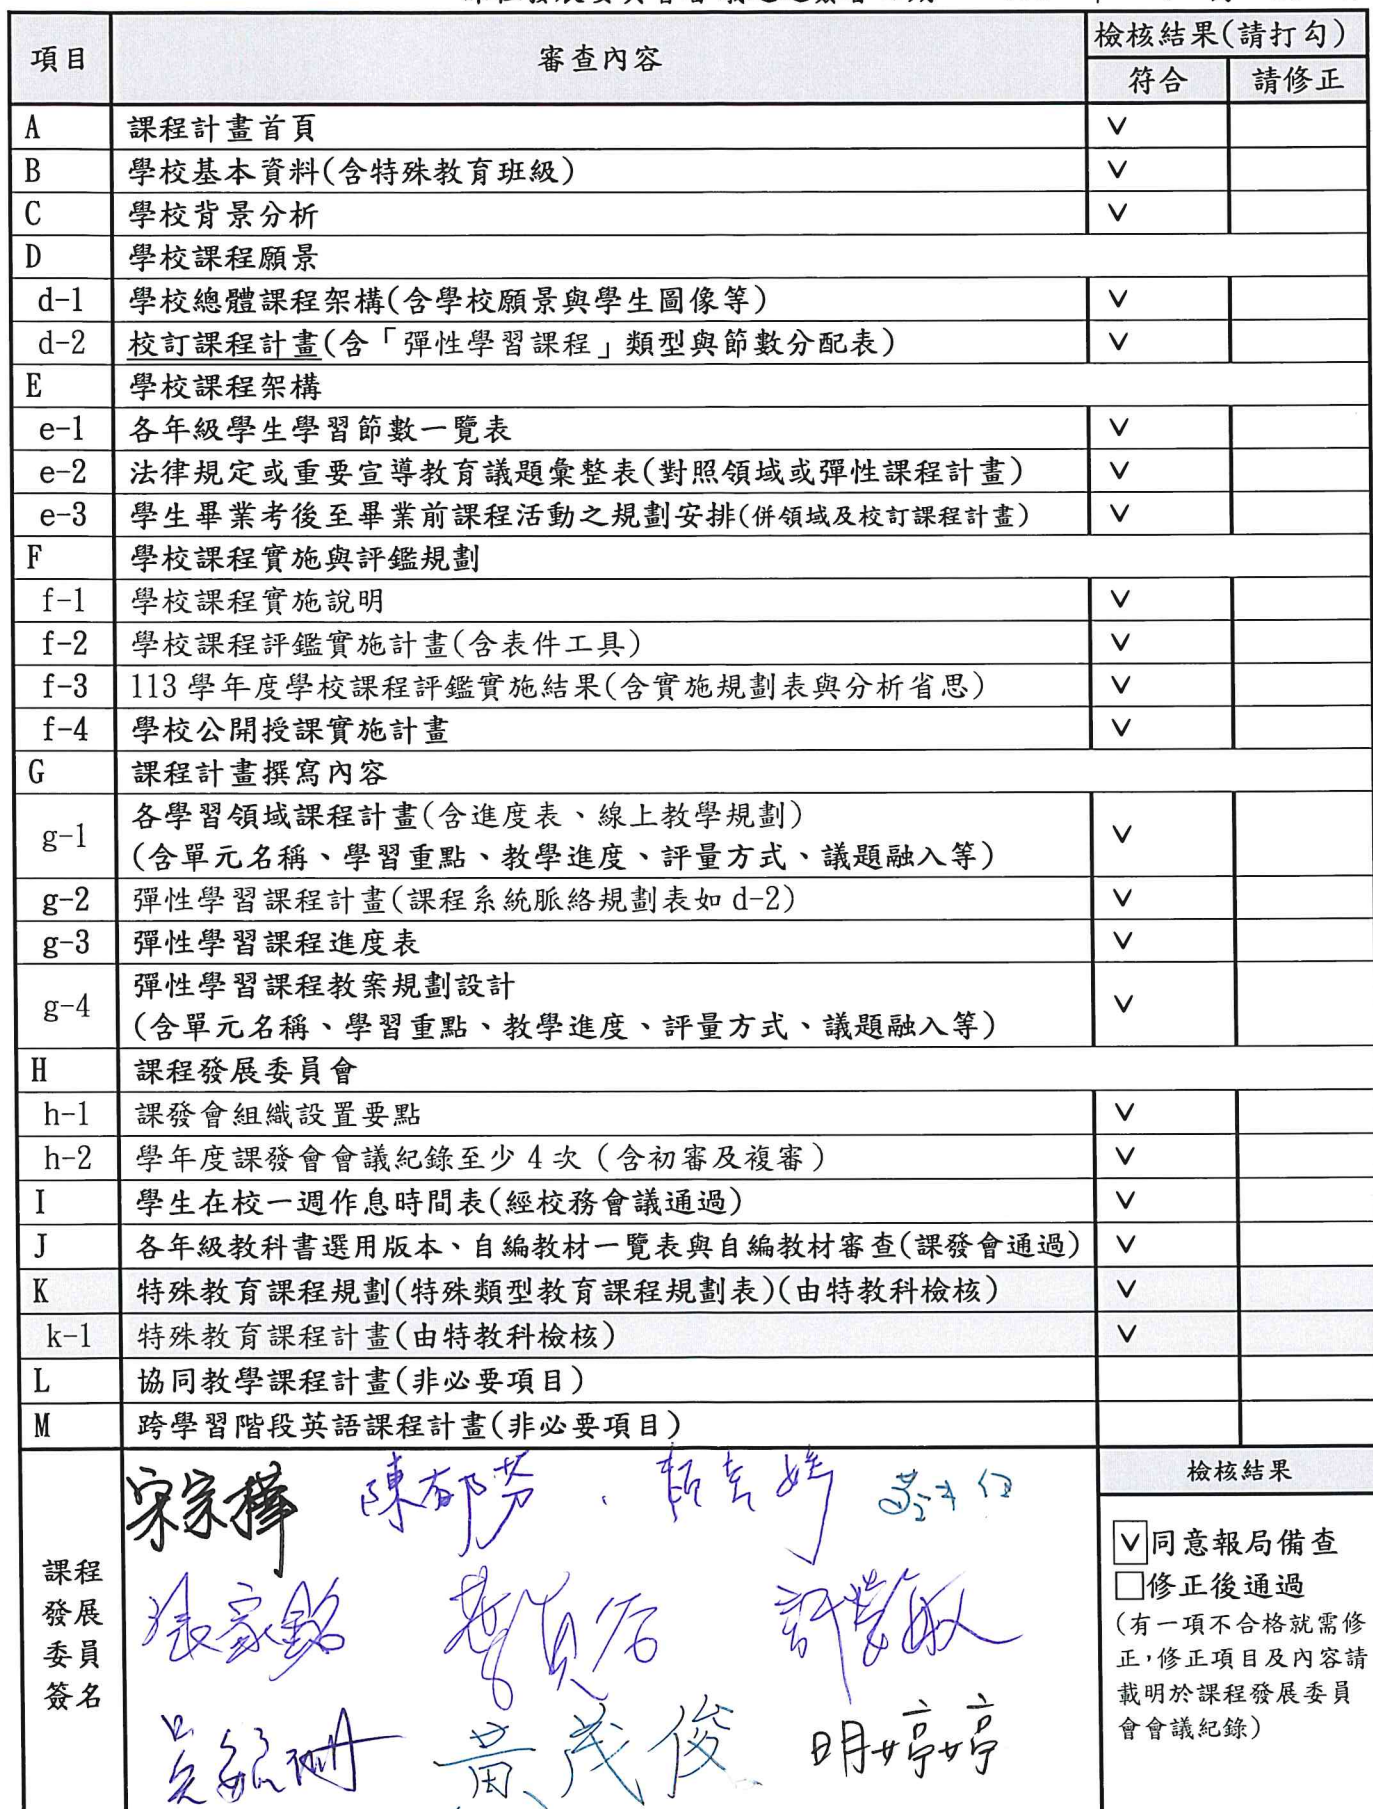 項目 審查內容 檢核結果(請打勾)
符合 請修正
A 課程計畫首頁 V
B 學校基本資料(含特殊教育班級) V
C 學校背景分析 V
D 學校課程願景
d-1 學校總體課程架構(含學校願景與學生圖像等) V
d-2 校訂課程計畫(含「彈性學習課程」類型與節數分配表) V
E 學校課程架構
e-1 各年級學生學習節數一覽表 V
e-2 法律規定或重要宣導教育議題彙整表(對照領域或彈性課程計畫) V
e-3 學生畢業考後至畢業前課程活動之規劃安排(併領域及校訂課程計畫) V
F 學校課程實施與評鑑規劃
f-1 學校課程實施說明 V
f-2 學校課程評鑑實施計畫(含表件工具) V
f-3 113 學年度學校課程評鑑實施結果(含實施規劃表與分析省思) V
f-4 學校公開授課實施計畫 V
G 課程計畫撰寫內容
g-1 各學習領域課程計畫(含進度表、線上教學規劃) V
(含單元名稱、學習重點、教學進度、評量方式、議題融入等)
g-2 彈性學習課程計畫(課程系統脈絡規劃表如 d-2) V
g-3 彈性學習課程進度表 V
g-4 彈性學習課程教案規劃設計 V
(含單元名稱、學習重點、教學進度、評量方式、議題融入等)
H 課程發展委員會
h-1 課發會組織設置要點 V
h-2 學年度課發會會議紀錄至少 4 次（含初審及複審） V
I 學生在校一週作息時間表(經校務會議通過) V
J 各年級教科書選用版本、自編教材一覽表與自編教材審查(課發會通過) V
K 特殊教育課程規劃(特殊類型教育課程規劃表)(由特教科檢核) V
k-1 特殊教育課程計畫(由特教科檢核) V
L 協同教學課程計畫(非必要項目)
M 跨學習階段英語課程計畫(非必要項目)
課程
發展
委員
簽名
宋宗樺 陳郁芬
張家銘
黃茂俊 明婷婷
檢核結果
V同意報局備查
□修正後通過
(有一項不合格就需修
正,修正項目及內容請
載明於課程發展委員
會會議紀錄)